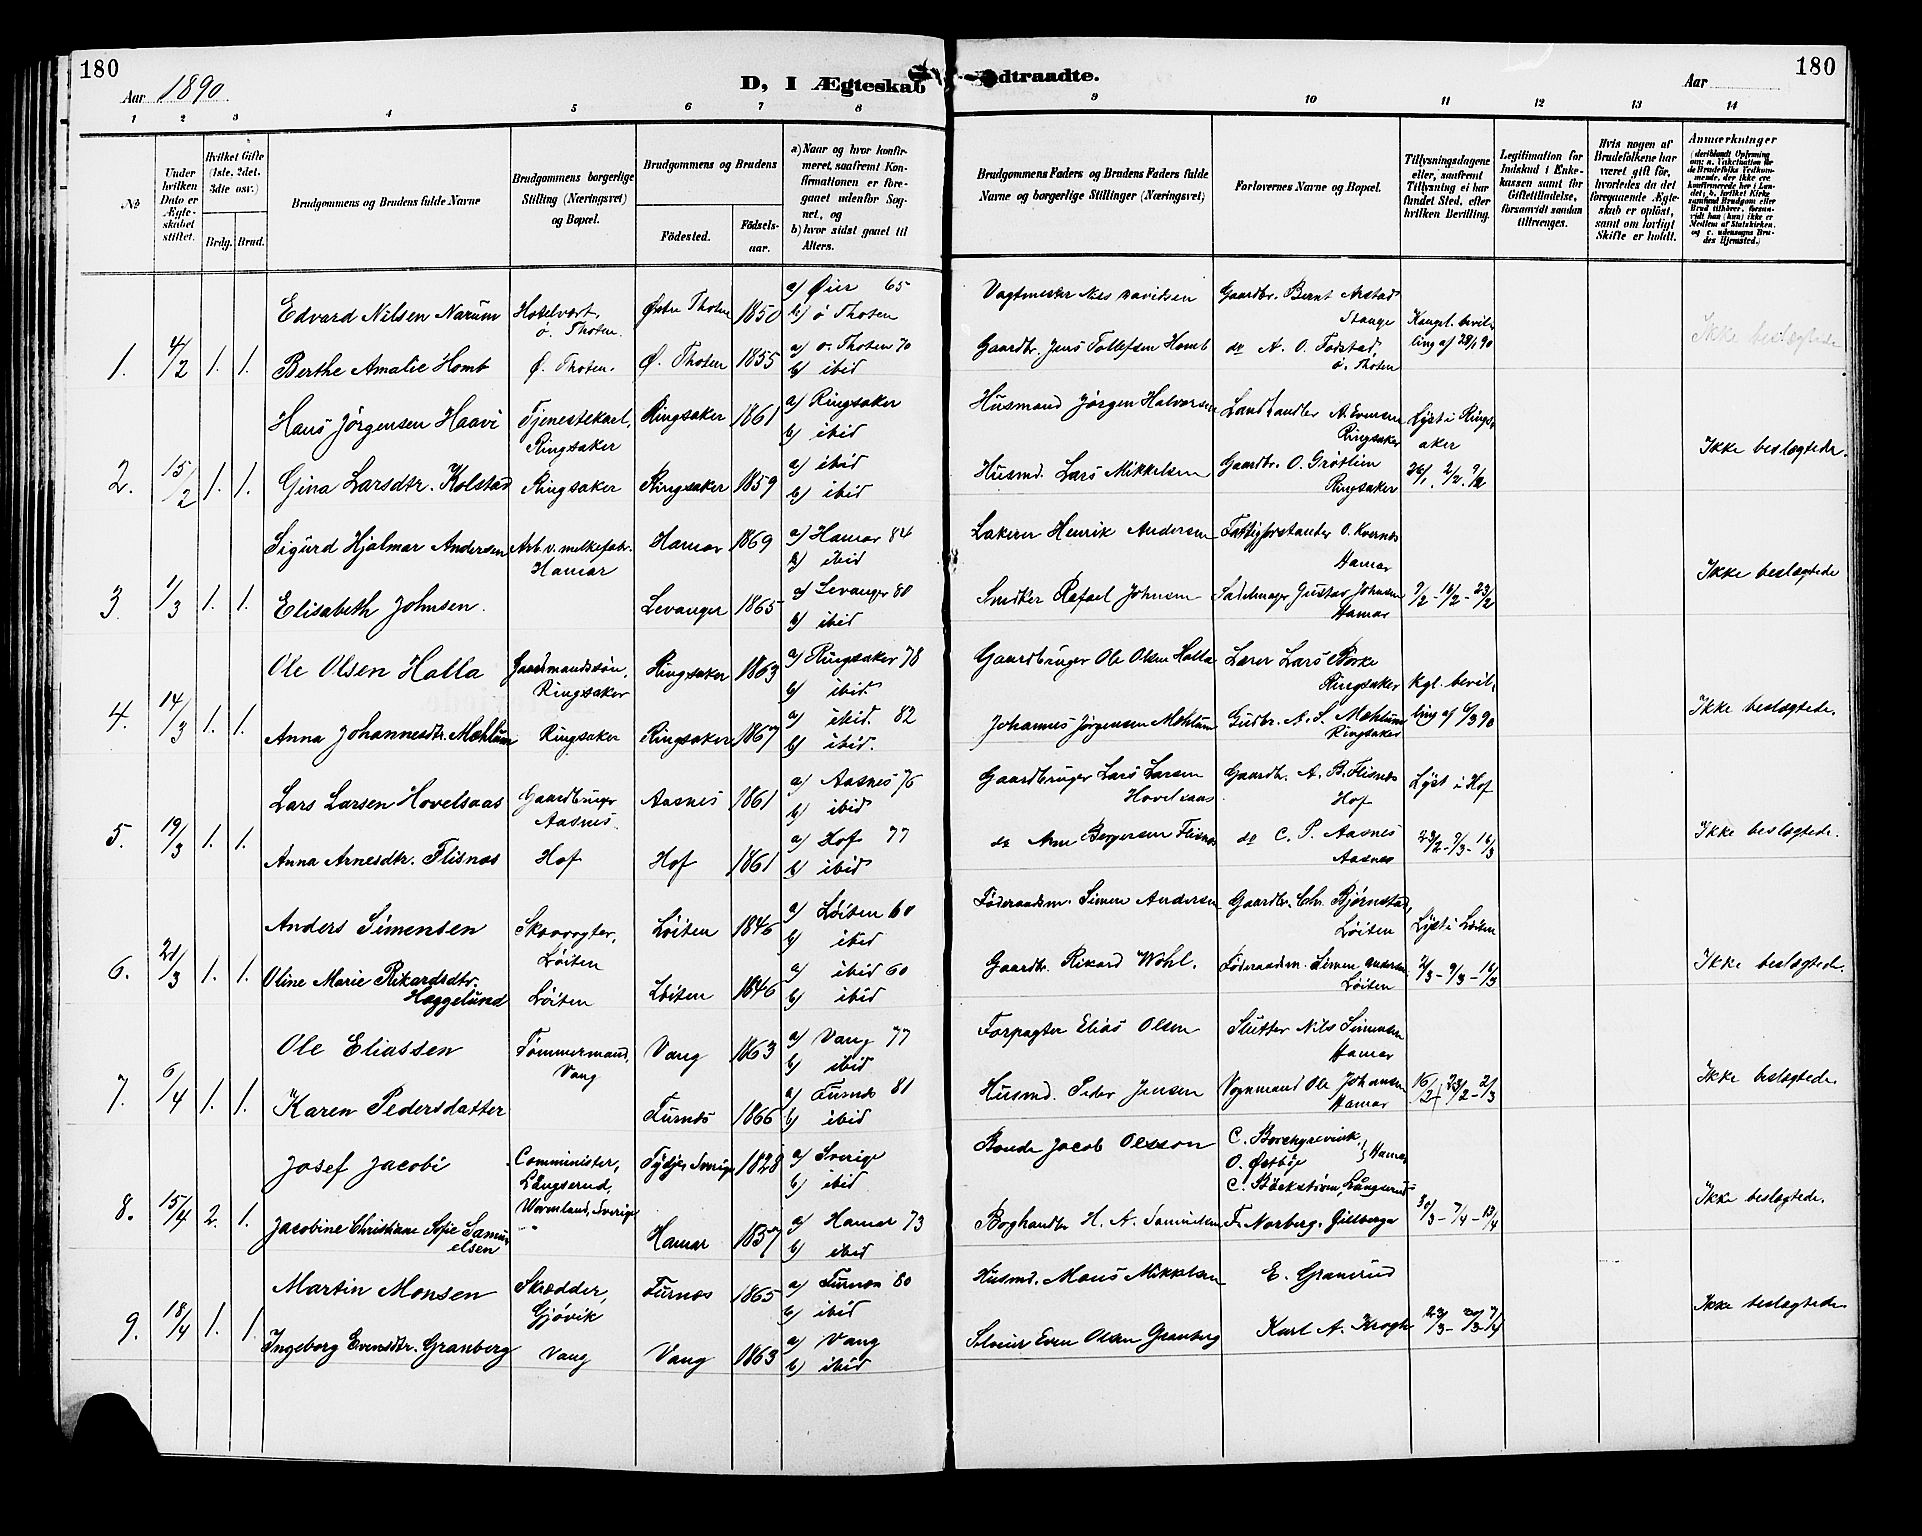 180
Aar 1890.
D, I Ægteskab
dtraadte.
Aar
180
1 2 3 4 5 6 7 8 9 10 11 12 13 14
No
Under hvilken Dato er Ægteskabet stiftet.
Hvilket Gifte (1ste, 2det, 3die osv.)
Brdg. Brud.
Brudgommens og Brudens fulde Navne
Brudgommens borgerlige Stilling (Næringsvei) og Bopæl.
Brudgommens og Brudens
Fødested.
Fødselsaar.
a) Naar og hvor konfirmeret, saafremt Konfirmationen er foregaaet udenfor Sognet, og
b) hvor sidst gaaet til Alters.
Brudgommens Faders og Brudens Faders fulde Navne og borgerlige Stillinger (Næringsvei)
Forlovernes Navne og Bopæl.
Tillysningsdagene eller, saafremt Tillysning ei har fundet Sted, efter hvilken Bevilling.
Legitimation for Indskud i Enkekassen samt for Giftetilladelse, forsaavidt saadan tiltrænges.
Hvis nogen af Brudefolkene har været gift før, hvorledes da det foregaaende Ægteskab er opløst, samt om lovligt Skifte er holdt.
Anmærkninger
1. 4/2 1. 1.
Edvard Nilsen Narum
Hotelvært, ö. Thoten.
Østre Thoten 1850
a) Øier 65
b) ö Thoten
Gaardbr. Bernt Arstad
Stange
Kongel. bevilling af 28/1 90
Berthe Amalie Homb
Ø. Thoten.
Ø. Thoten 1855
a) ö. Thoten 70
b) ibid
Gaardbr. Jens Tollefsen Homb
do A. O. Fodstad,
ö. Thoten
Ikke beslægtede
2. 15/2 1. 1.
Hans Jørgensen Haavi
Tjenestekarl, Ringsaker
Ringsaker 1861
a) Ringsaker
b) ibid
Husmand Jørgen Halvorsen
Landhandler A. Evensen
Ringsaker
Lyst i Ringsaker
Gina Larsdtr. Kolstad
Ringsaker
Ringsaker 1859
a) ibid
b) ibid
Husmd. Lars Mikkelsen
Gaardbr. O. Grøtlien
Ringsaker
26/1. 2/2. 9/2
Ikke beslægtede.
3. 1/3 1. 1.
Sigurd Hjalmar Andersen
Arb. v. melkefabr. Hamar
Hamar 1869
a) Hamar 84
b) ibid
Henrik Andersen
Fattigforstander O. Kvernes
Hamar
Elisabeth Johnsen.
Levanger 1865
a) Levanger 80
b) ibid
Snedker Rafael Johnsen
Sadelmager Gustav Johnsen
Hamar
9/2 - 16/2 - 23/2
Ikke beslægtede
4. 14/3 1. 1.
Ole Olsen Halla
Gaardmandssøn, Ringsaker
Ringsaker 1863
a) Ringsaker 78
b) ibid.
Gaardbruger Ole Olsen Halla
Lærer Lars Borke
Ringsaker
Kgl. bevilling af 6/3 90
Anna Johannesdtr. Mæhlum
Ringsaker
Ringsaker 1867
a) ibid. 82
b) ibid.
Johannes Jørgensen Mæhlum
Gudbr. A. S. Mæhlum
Ringsaker
Ikke beslægtede.
5. 19/3 1. 1.
Lars Larsen Hovelsaas
Gaardbruger Aasnes.
Aasnes 1861
a) Aasnes 76
b) ibid
Gaardbruger Lars Larsen
Hovelsaas
Gaardbr. A. B. Flisnes
Hof
Lyst i Hof
Anna Arnesdtr. Flisnes
Hof
Hof 1861
a) Hof 77
b) ibid
do Arne Bergersen Flisnes
do C. P. Aasnes
Aasnes
23/2 - 9/3 - 16/3
Ikke beslægtede.
6. 21/3 1. 1.
Anders Simensen
Skovvogter, Løiten
Løiten 1846
a) Løiten 60
b) ibid
Føderaadsm. Simen Andersen
Gaardbr. Chr. Bjørnstad,
Løiten
Lyst i Løiten
Oline Marie Rikardsdtr. Haggelund
Løiten
Løiten 1846
a) ibid 60
b) ibid
Gaardbr. Rikard Wohl.
Føderaadsm. Simen Andersen
Løiten
2/3 - 9/3 - 16/3
Ikke beslægtede.
7. 6/4 1. 1.
Ole Eliassen
Tømmermand, Vang
Vang 1863
a) Vang 77
b) ibid
Forpagter Elias Olsen
Slutter Nils Simensen
Hamar
Karen Pedersdatter
Furnes 1866
a) Furnes 81
b) ibid
Husmd. Peder Jensen
Vognmand Ole Johansen
Hamar
16/2 - 23/2 - 2/3
Ikke beslægtede
8. 15/4 2. 1.
Josef Jacobi
Comminister, Långserud, Wermland, Sverige
Tydje, Sverige 1828
a) Sverige
b) ibid
Bonde Jacob Olsson
C. Borchgrevink, O. Østbøe } Hamar
C. Bäckström, Långserud
Jacobine Christiane Sofie Samuelsen
"
Hamar 1857
a) Hamar 73
b) ibid
Boghandler H. A. Samuelsen
F. Norberg, Gillberga
30/3 - 7/4 - 13/4
Ikke beslægtede.
9. 18/4 1. 1.
Martin Monsen
Skrædder, Gjøvik
Furnes 1865
a) Furnes 80
b) ibid
Husmd. Mons Mikkelsen
E. Granerud
Ingeborg Evensdtr. Granberg
Vang
Vang 1863
a) Vang
b) ibid
Even Olsen Granberg
Karl A. Krogh
23/3 - 30/3 - 7/4
Ikke beslægtede